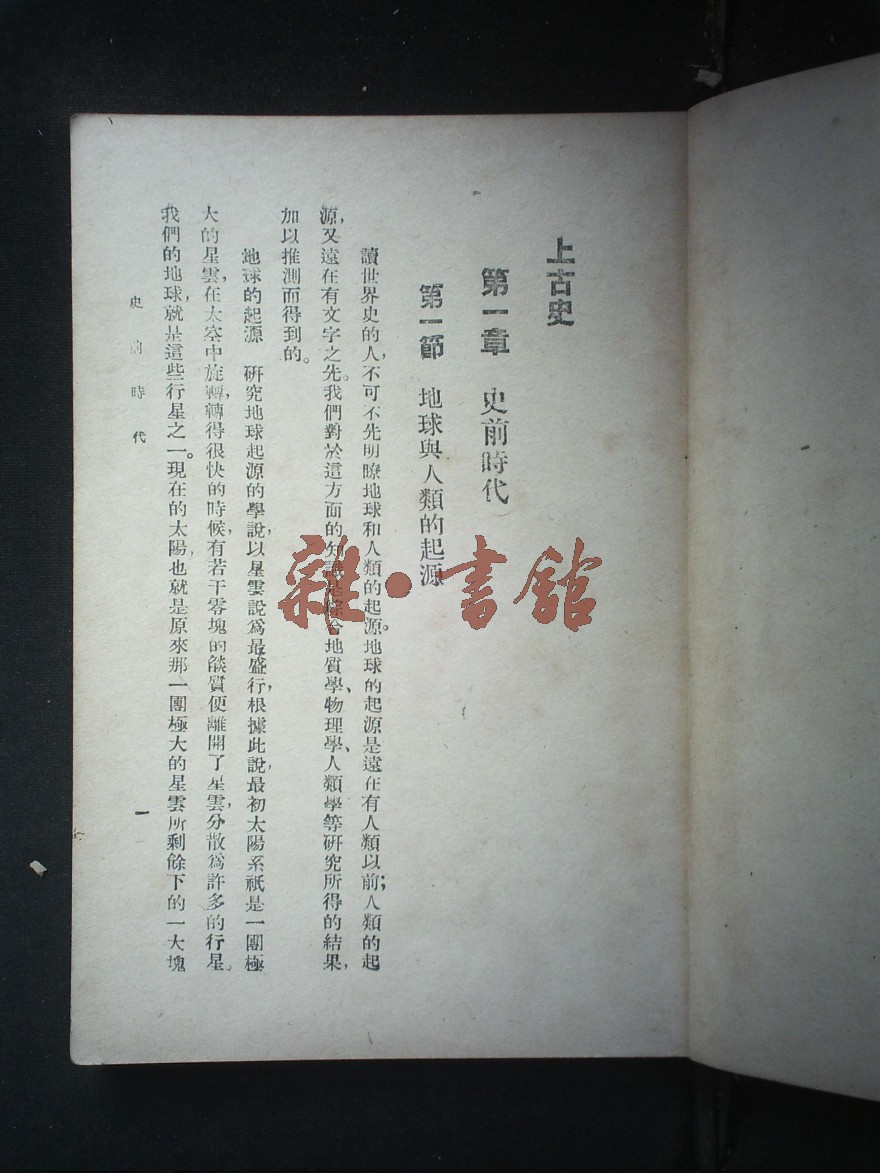 上古史
第一章 史前時代
第一節 地球與人類的起源
讀世界史的人,不可不先明瞭地球和人類的起源。地球的起源是遠在有人類以前;人類的起
源,又遠在有文字之先。我們對於這方面的知識是綜合地質學、物理學、人類學等研究所得的結果,
加以推測而得到的。
地球的起源 研究地球起源的學說,以星雲說爲最盛行,根據此說,最初太陽系祇是一團極
大的星雲,在太空中旋轉,轉得很快的時候,有若干零塊的燄質便離開了星雲,分散爲許多的行星。
我們的地球,就是這些行星之一。現在的太陽,也就是原來那一團極大的星雲所剩餘下的一大塊
史前時代
一
雜·書館